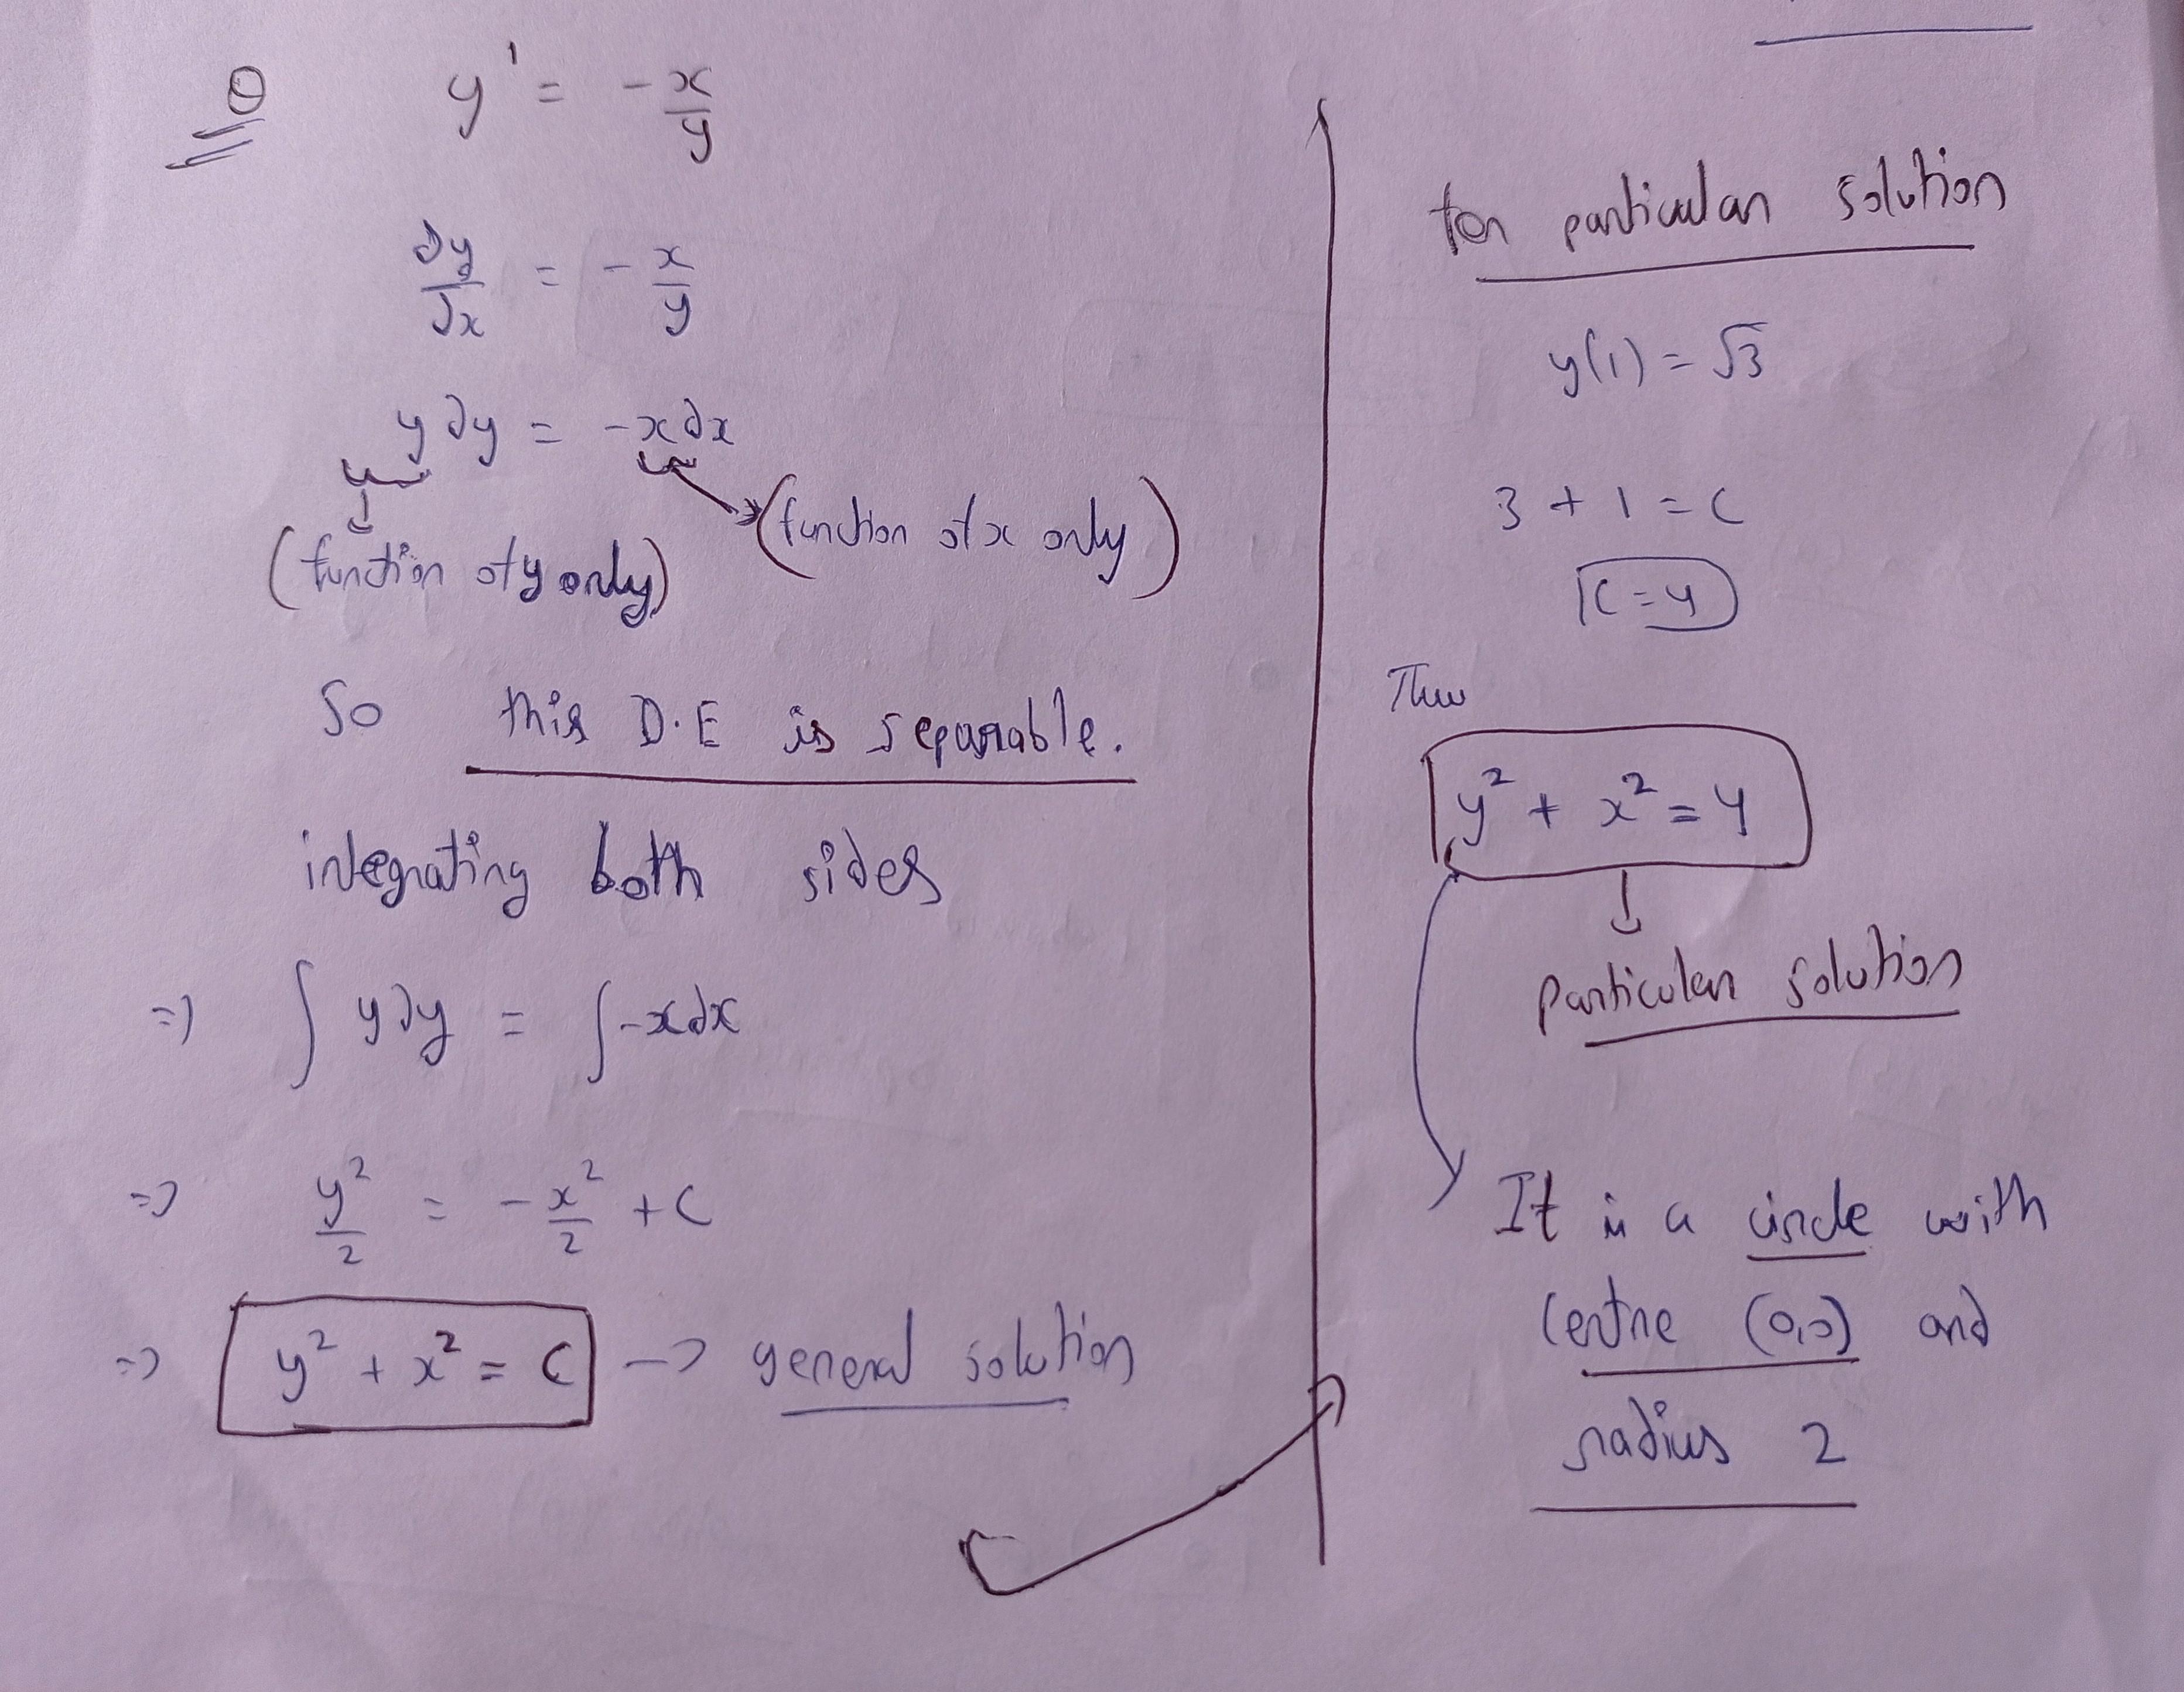 Q y' = -x/y
dy/dx = -x/y
y dy = -x dx
(function of y only) (function of x only)
So this D.E is separable.
integrating both sides
=> ∫ y dy = ∫ -x dx
=> y²/2 = -x²/2 + C
=> y² + x² = C -> general solution
for particular solution
y(1) = √3
3 + 1 = C
C = 4
Thus
y² + x² = 4
particular solution
It is a circle with
centre (0,0) and
radius 2